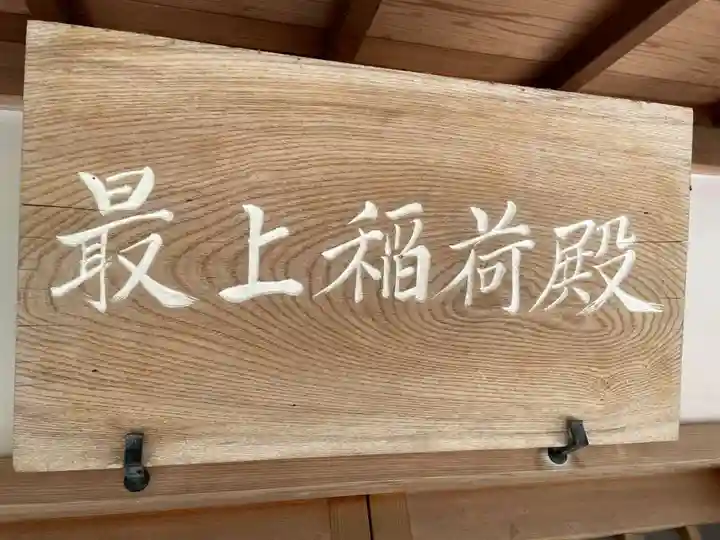 最上稲荷殿